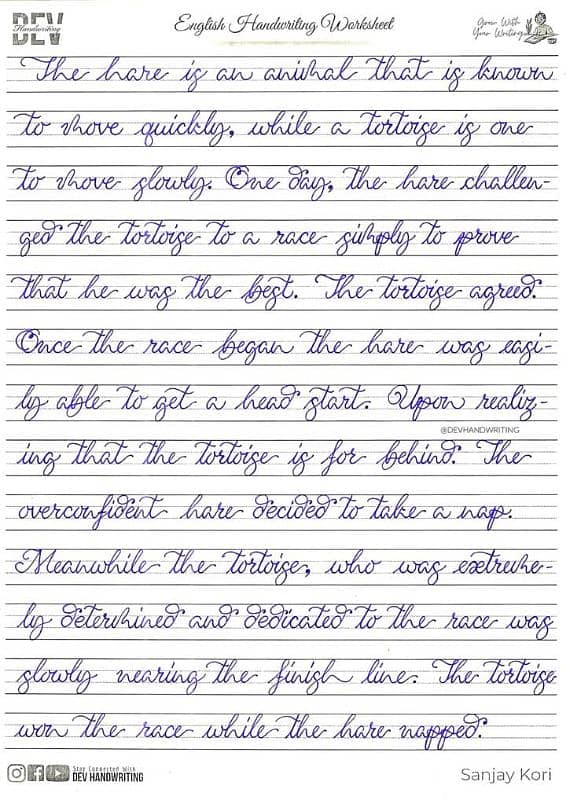 DEV
Handwriting
English Handwriting Worksheet
Grow With
Your Writing
The hare is an animal that is known
to move quickly, while a tortoise is one
to move slowly. One day, the hare challen-
ged the tortoise to a race simply to prove
that he was the best. The tortoise agreed.
Once the race began the hare was easi-
ly able to get a head start. Upon realiz-
@DEVHANDWRITING
ing that the tortoise is far behind. The
overconfident hare decided to take a nap.
Meanwhile the tortoise, who was extreme-
ly determined and dedicated to the race was
slowly nearing the finish line. The tortoise
won the race while the hare napped.
Stay Connected With
DEV HANDWRITING
Sanjay Kori